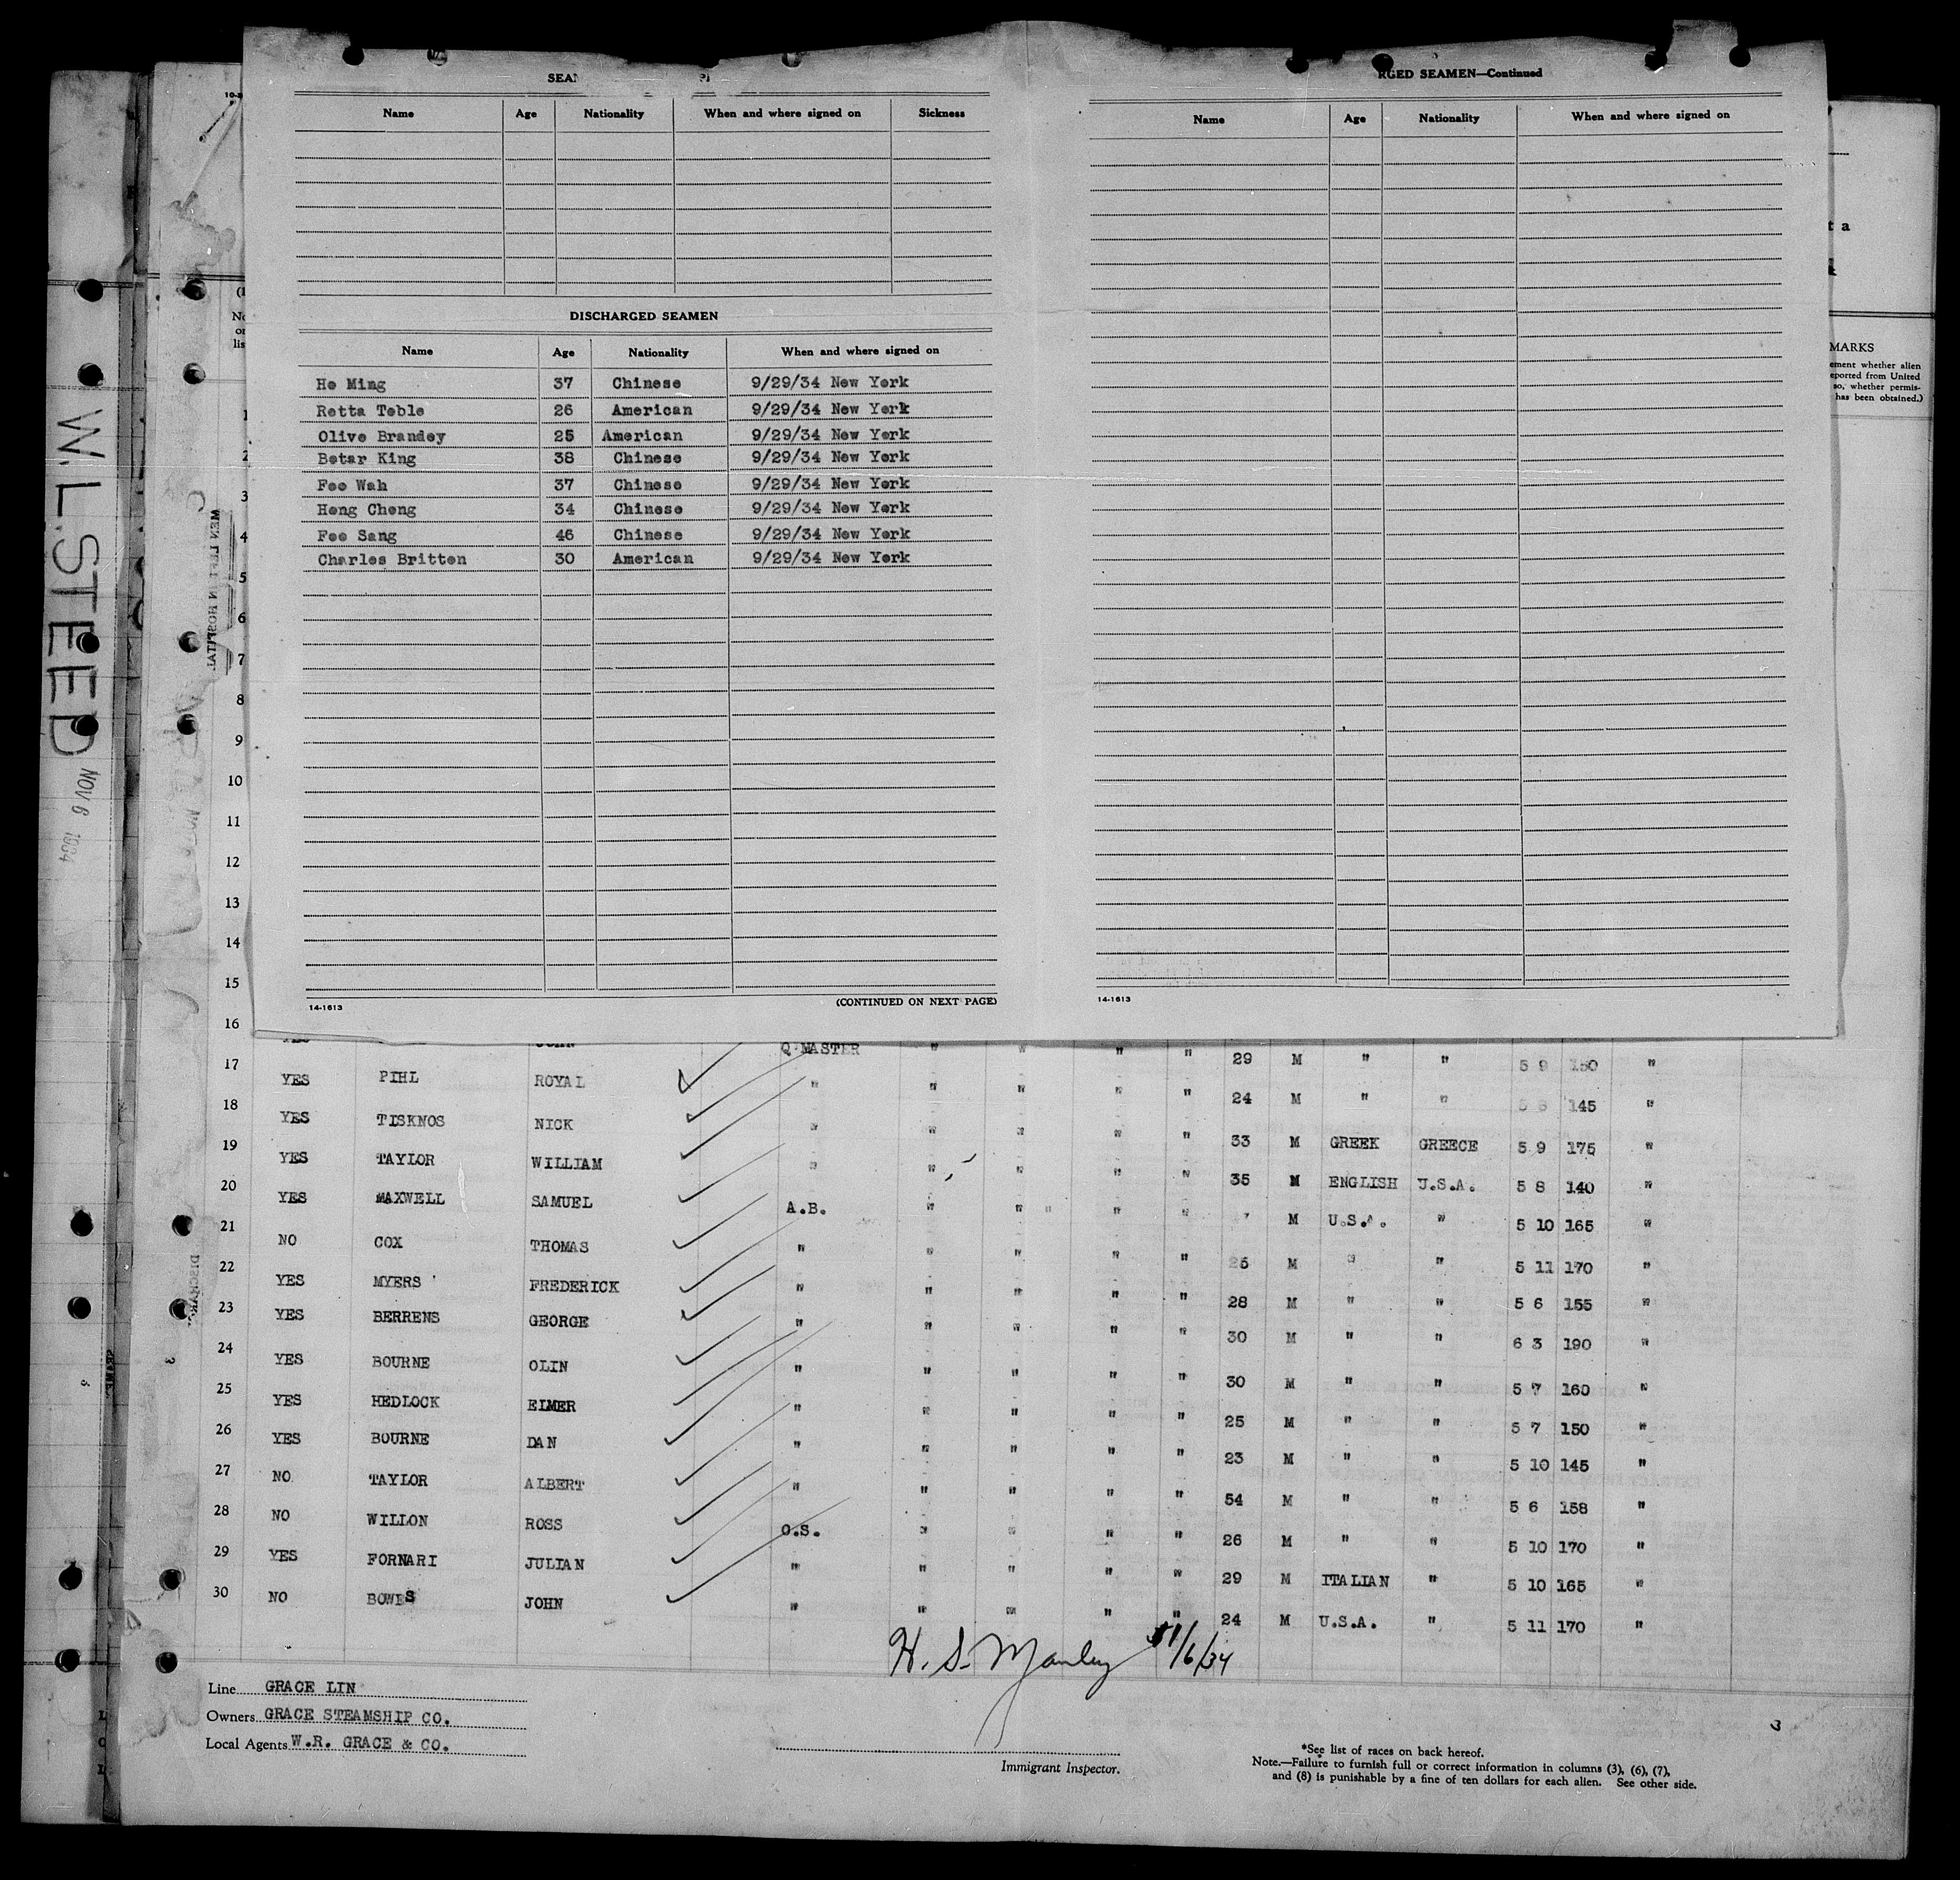 RGED SEAMEN—Continued
Name Age Nationality When and where signed on Sickness
Name Age Nationality When and where signed on
DISCHARGED SEAMEN
Name Age Nationality When and where signed on
Ho Ming 37 Chinese 9/29/34 New York
Retta Teble 26 American 9/29/34 New York
Olive Brandey 25 American 9/29/34 New York
Betar King 38 Chinese 9/29/34 New York
Foo Wah 37 Chinese 9/29/34 New York
Hong Chong 34 Chinese 9/29/34 New York
Foo Sang 46 Chinese 9/29/34 New York
Charles Britten 30 American 9/29/34 New York
14-1613 (CONTINUED ON NEXT PAGE)
14-1613
MARKS
ement whether alien
eported from United
so, whether permis-
has been obtained.)
W.L.STEED
NOV 6 1934
MEN LEFT IN HOSPITAL
1
2
3
4
5
6
7
8
9
10
11
12
13
14
15
16
JOHN Q.MASTER " " " " 29 M " " 5 9 150 "
17 YES PIHL ROYAL " " " " " 24 M " " 145 "
18 YES TISKNOS NICK " " " " " 33 M GREEK GREECE 5 9 175 "
19 YES TAYLOR WILLIAM " " " " " 35 M ENGLISH U.S.A. 5 8 140 "
20 YES MAXWELL SAMUEL A.B. " " " " " M U.S.A. " 5 10 165 "
21 NO COX THOMAS " " " " " 25 M " " 5 11 170 "
22 YES MYERS FREDERICK " " " " " 28 M " " 5 6 155 "
23 YES BERRENS GEORGE " " " " " 30 M " " 6 3 190 "
24 YES BOURNE OLIN " " " " " 30 M " " 5 7 160 "
25 YES HEDLOCK ELMER " " " " " 25 M " " 5 7 150 "
26 YES BOURNE DAN " " " " " 23 M " " 5 10 145 "
27 NO. TAYLOR ALBERT " " " " " 54 M " " 5 6 158 "
28 NO WILLON ROSS O.S. " " " " 26 M " " 5 10 170 "
29 YES FORNARI JULIAN " " " " " 29 M ITALIAN " 5 10 165 "
30 NO BOWES JOHN " " " " " 24 M U.S.A. " 5 11 170 "
H. S. Manley 11/6/34
Line GRACE LIN
Owners GRACE STEAMSHIP CO.
Local Agents W.R. GRACE & CO.
Immigrant Inspector.
3
*See list of races on back hereof.
Note.—Failure to furnish full or correct information in columns (3), (6), (7),
and (8) is punishable by a fine of ten dollars for each alien. See other side.